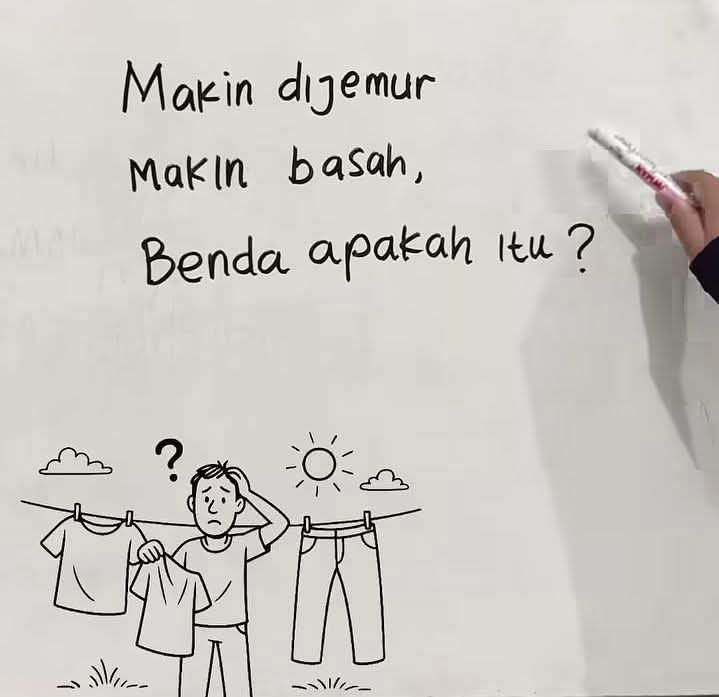 Makin dijemur
Makin basah,
Benda apakah itu?
?